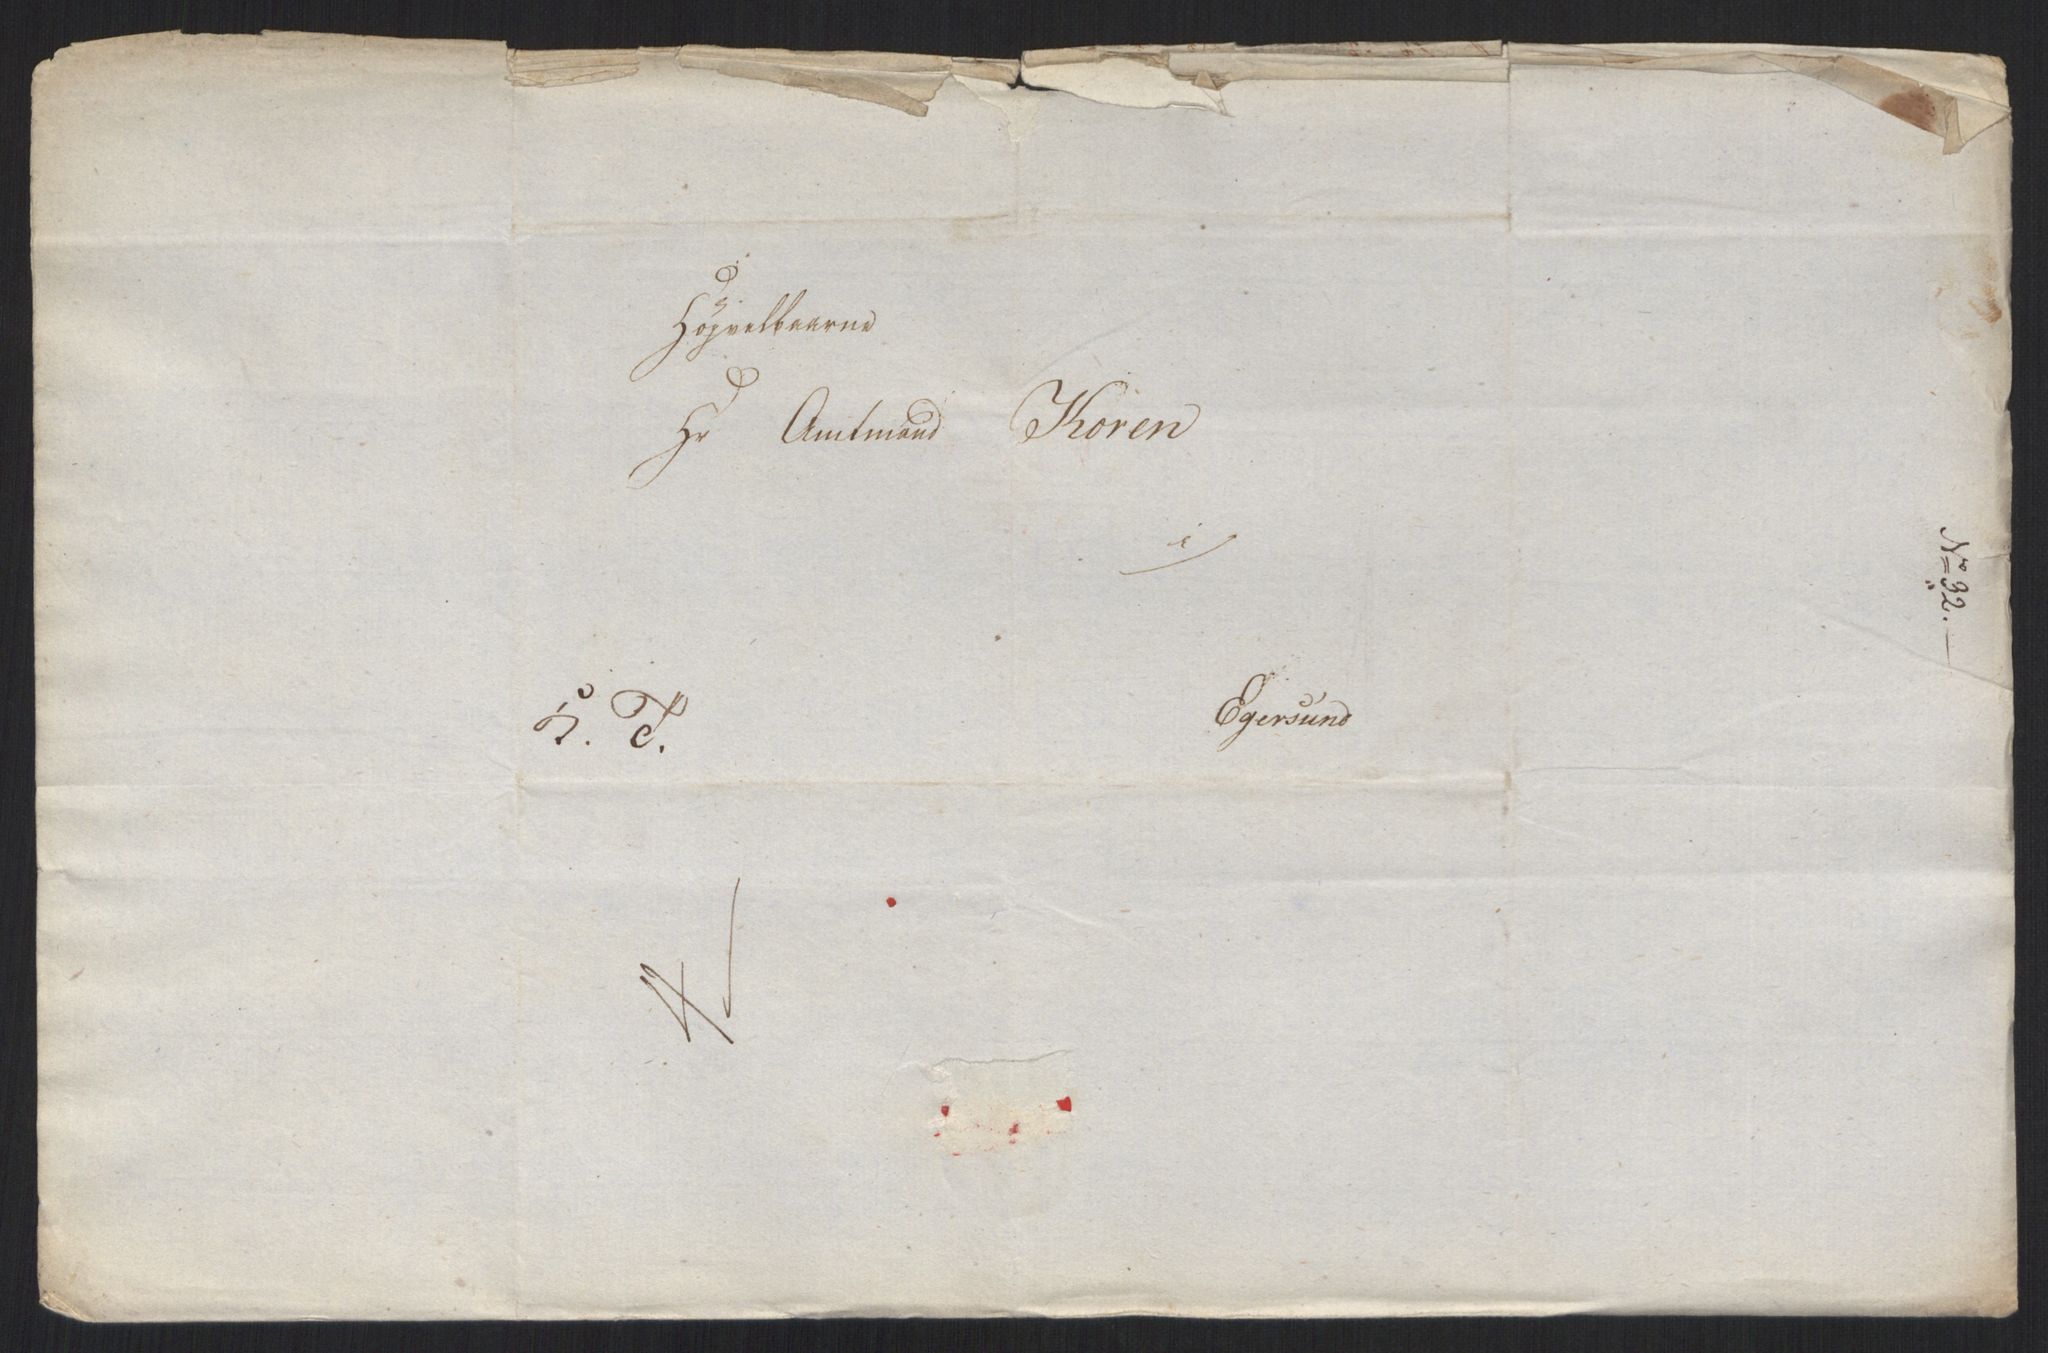 Høyvelbaarne
Hr Amtmand Koren
i
Egersund
K. T.
No 32.